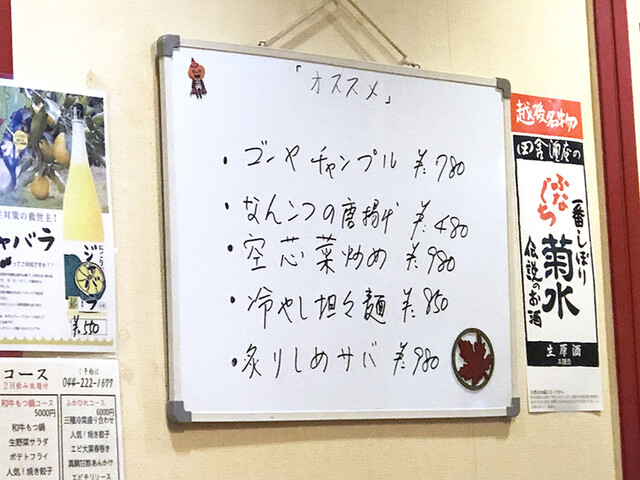 「オススメ」
・ゴーヤチャンプル ¥780
・なんこつの唐揚げ ¥480
・空芯菜炒め ¥980
・冷やし坦々麺 ¥850
・炙りしめサバ ¥980
越後名物
田舎酒店の
ふなぐち
一番しぼり
菊水
伝説のお酒
生原酒
本醸造
定対策の救世主!
ャバラ
って
ご存知ですか??
にごり
ジャバラ
¥550
コース
2H飲み放題付
ご予約は
044-222-1677
和牛もつ鍋コース
5000円
和牛もつ鍋
生野菜サラダ
ポテトフライ
人気!焼き餃子
ふかひれコース
6000円
三種冷菜盛り合わせ
人気!焼き餃子
エビ大葉春巻き
真鯛甘酢あんかけ
エビチリソース